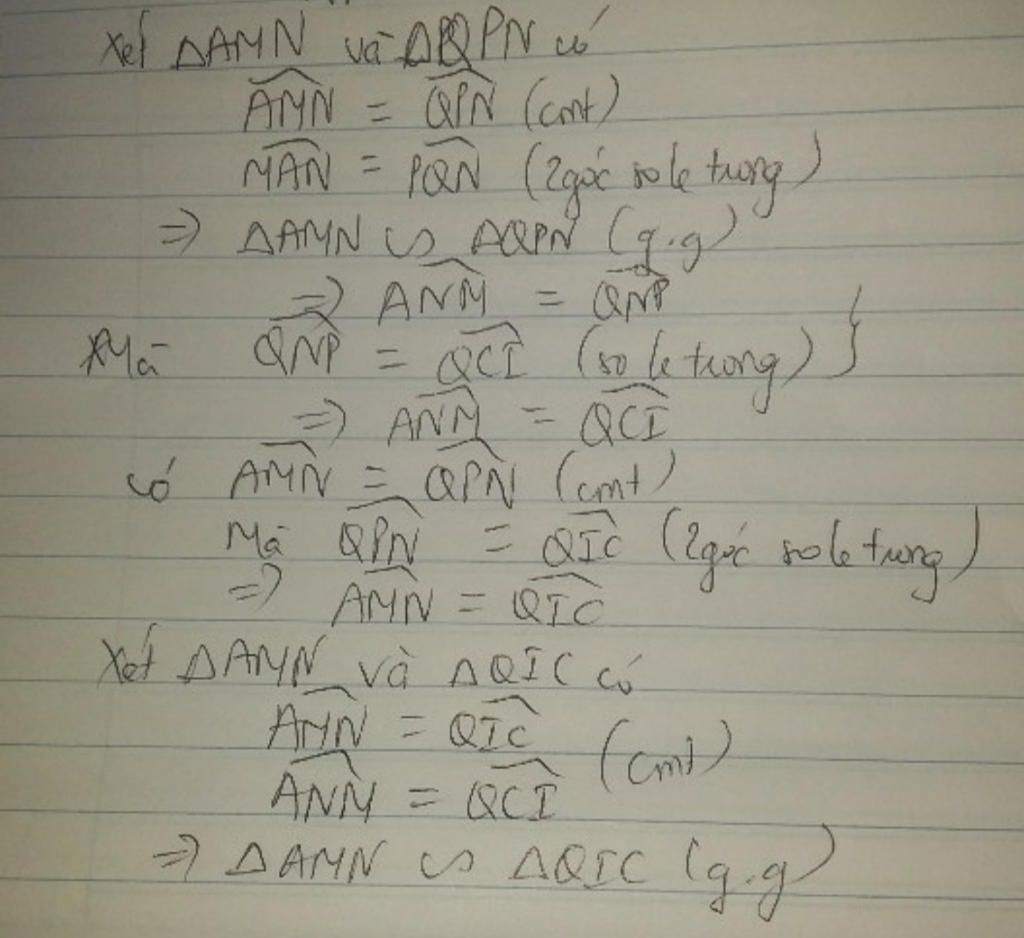 Xét ΔAMN và ΔQPN có
\widehat{AMN} = \widehat{QPN} (cmt)
\widehat{MAN} = \widehat{PQN} (2góc so le trong)
=> ΔAMN ∽ ΔQPN (g.g)
=> \widehat{ANM} = \widehat{QNP}
Mà \widehat{QNP} = \widehat{QCI} (so le trong) }
=> \widehat{ANM} = \widehat{QCI}
có \widehat{AMN} = \widehat{QPN} (cmt)
Mà \widehat{QPN} = \widehat{QIC} (2góc so le trong)
=> \widehat{AMN} = \widehat{QIC}
Xét ΔAMN và ΔQIC có
\widehat{AMN} = \widehat{QIC}
\widehat{ANM} = \widehat{QCI} (cmt)
=> ΔAMN ∽ ΔQIC (g.g)